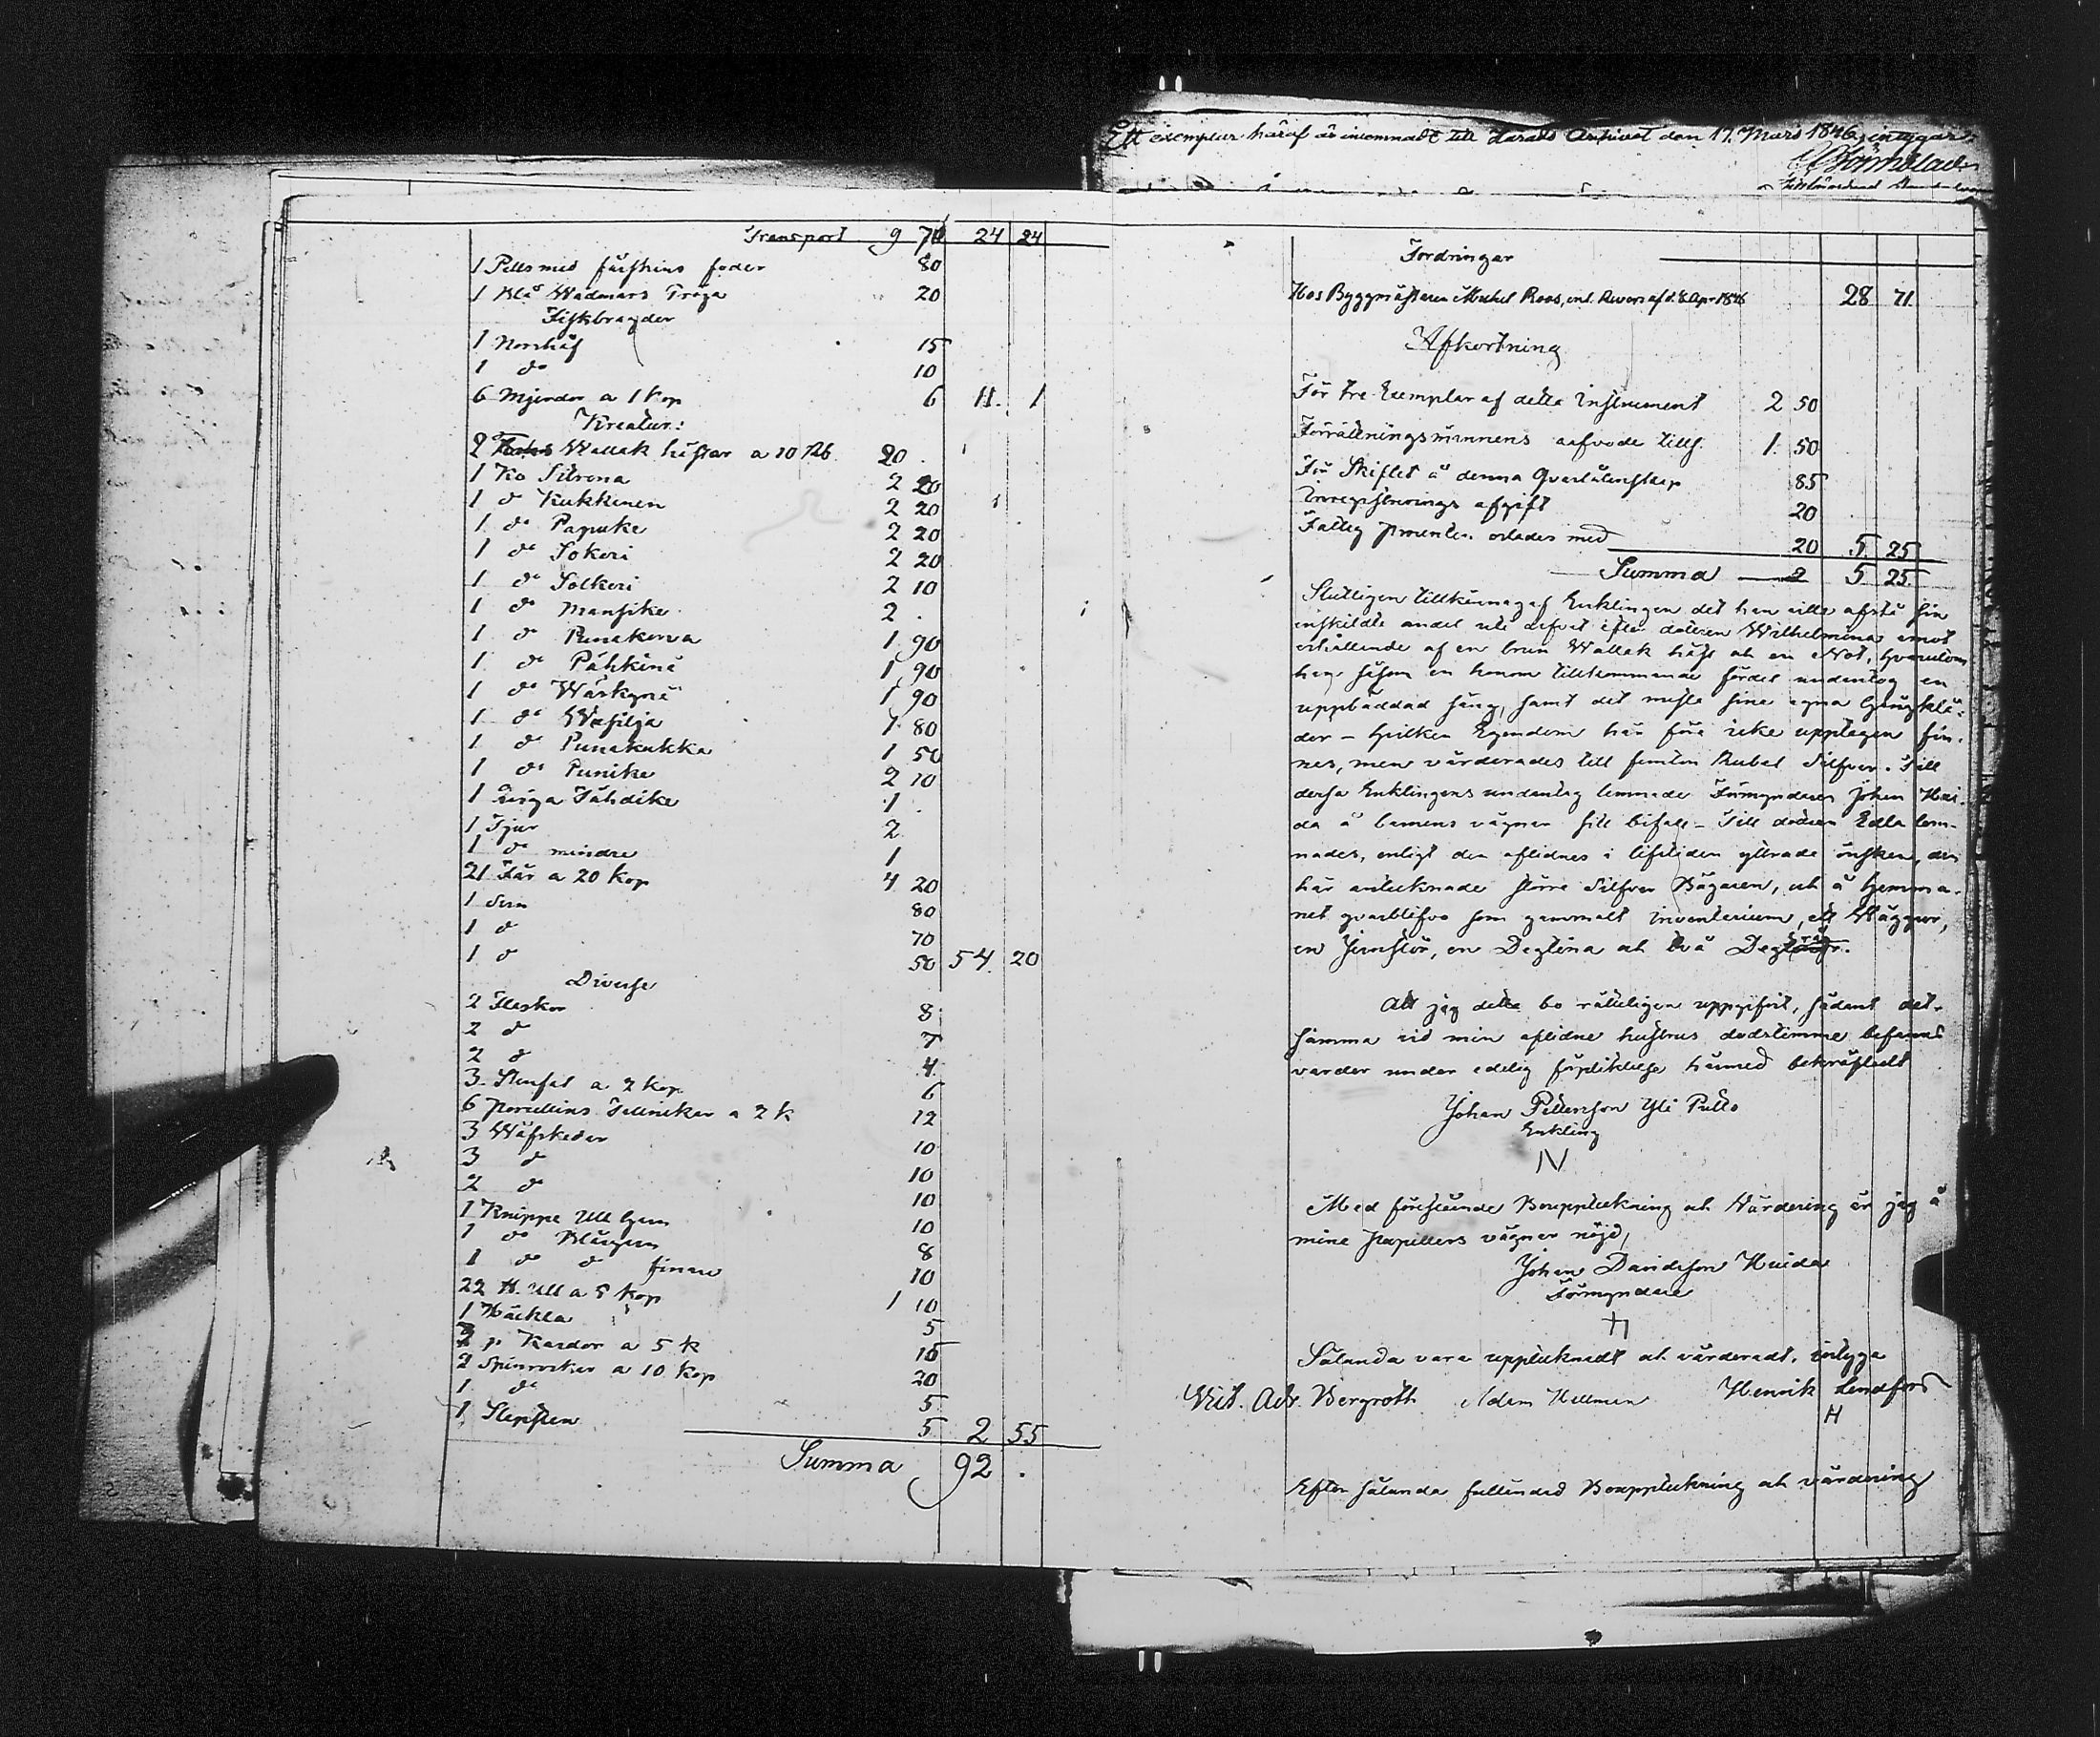 Transport 9 70 24 24
1 Pells med fårskins foder 80
1 Blå Wadmars Tröja 20
Fiskbragder
1 Norshåf 15
1 do 10
6 Mjerdor a 1 kop 6 11. 1
Kreatur:
2 Wallak hästar a 10 Rb 20 .
1 Ko Sitrona 2 20
1 do Kukkonen 2 20
1 do Papuke 2 20
1 do Sokeri 2 20
1 do Solkeri 2 10
1 do Mansike 2 .
1 do Punakorva 1 90
1 do Pähkinä 1 90
1 do Wäskynä 1 90
1 do Wasilja 1 80
1 do Punakukka 1 50
1 do Punike 2 10
1 Qviga Tähdike 1 .
1 Tjur 2
1 do mindre 1
21 Får a 20 kop 4 20
1 Svin 80
1 do 70
1 do 50 54. 20
Diverse
2 Flaskor 8
2 do 7
2 do 4
3 Stenfat a 2 kop 6
6 porcellins Tallrikar a 2 k 12
3 Wäfskedar 10
3 do 10
2 do 10
1 Knippe Ull Garn 10
1 do Blångarn 8
1 do do finare 10
22 ℔. Ull a 5 kop 1 10
1 Häckla 5
p. Kardor a 5 k 15
2 Spinrockar a 10 kop 20
1 do 5
1 Slepsten 5 2 55
Summa 92 .
Ett exemplar häraf är inlemnadt till Härads Arkivet den 17. Mars 1846, intygar:
Fordringar
Hos Byggmästaren Michel Roos, enl. Revers af d. 8 Apr 1846 28 71
Afkortning
För tre Exemplar af detta Instrument 2 50
Förrättningsmännens arfvode tills. 1. 50
För Skiftet å denna Qvarlåtenskap 85
Inregistrerings afgift 20
Fattig procenten erlades med 20 5. 25
Summa 5 25.
Slutligen tillkännagaf Enklingen det han ville afstå sin
enskildte andel uti arfvet efter dottren Wilhelmina emot
erhållande af en brun Wallak häst och en Not, hvarutom
han såsom en honom tillkommande fördel undantog en
uppbäddad säng, samt det mesta sina egna Gångklä:
der – hvilken Egendom här före icke upptagen fin-
nes, men värderades till femton Rubel Silfver. Till
dessa Enklingens undantag lemnade Förmyndaren Johan Hui-
da å barnens vägnar sitt bifall – Till dottren Edla lem-
nades, enligt den aflidnes i lifstiden yttrade önskan, den
här antecknade större Silfver Bägaren, och å hemma-
net qvarblifva som gammalt inventarium, ett Wäggur,
en Jernstör, en Degtina och två Degtråg.
Att jag detta bo rätteligen uppgifvit, sådant det-
samma vid min aflidne hustrus dödstimme befanns
varder under edelig förpliktelse härmed bekräftadt
Johan Pettersson Yli Pullo
Enkling
Med förestående Bouppteckning och Värdering är jag å
mine pupillers vägnar nöjd,
Johan Davidsson Huida
Förmyndare
Sålunda vara upptecknadt och värderadt, intyga
Vict. Adr. Bergroth Adam Hellman Henrik Lendfors
H
Efter sålunda fulländad Bouppteckning och värdering